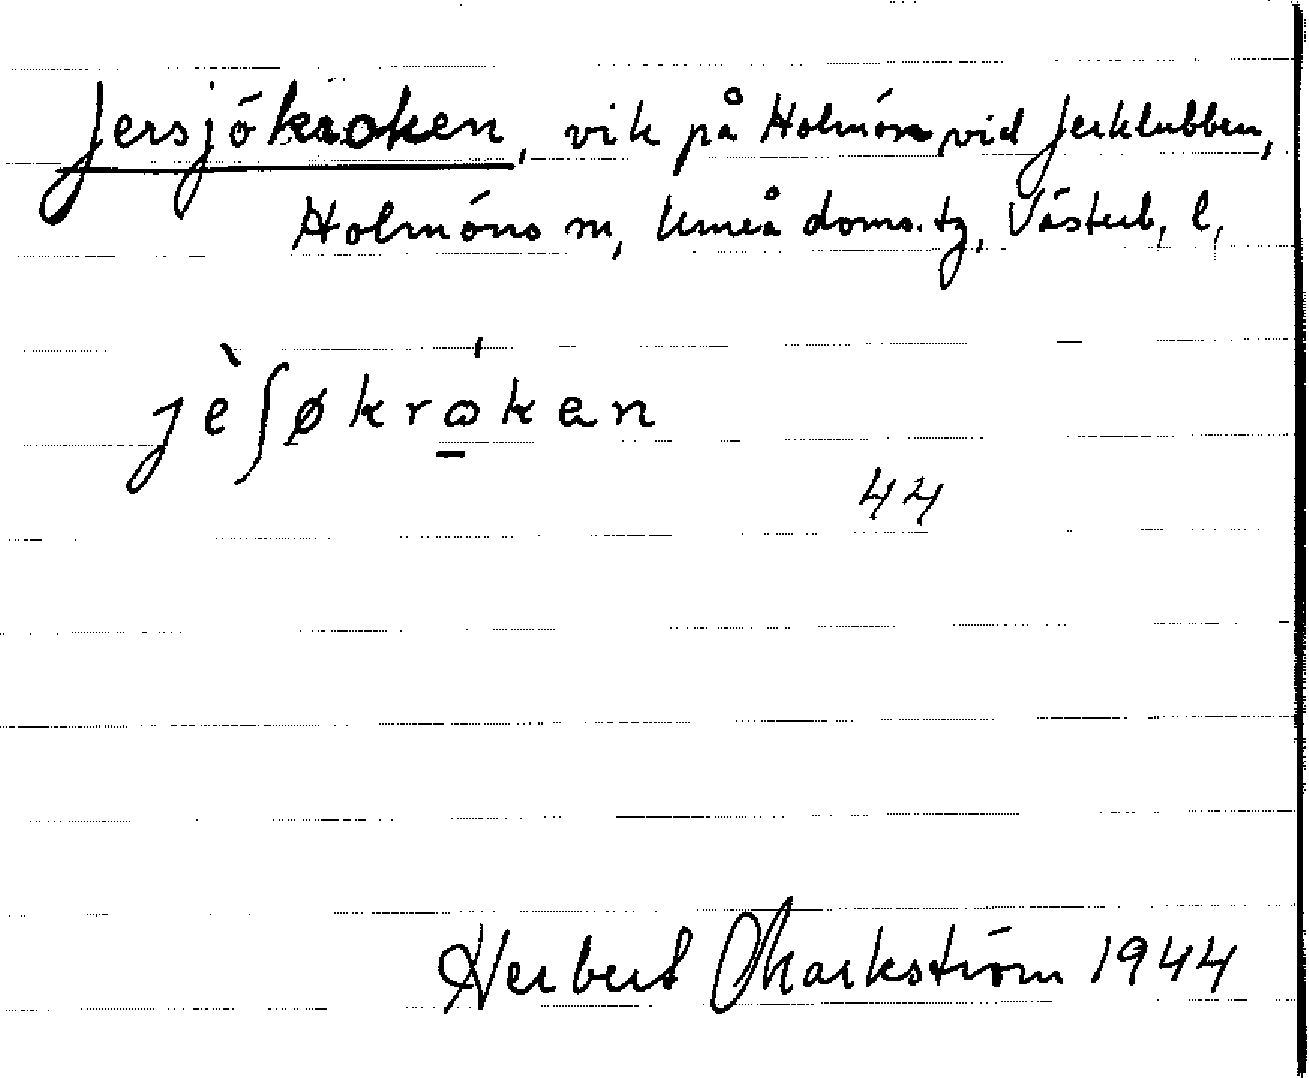 Jersjökroken, vik på Holmön vid Jerklubben,
Holmöns sn, Umeå doms. tg, Västerb. l,
jèʃøkrώ̱ken
44
Herbert Markström 1944